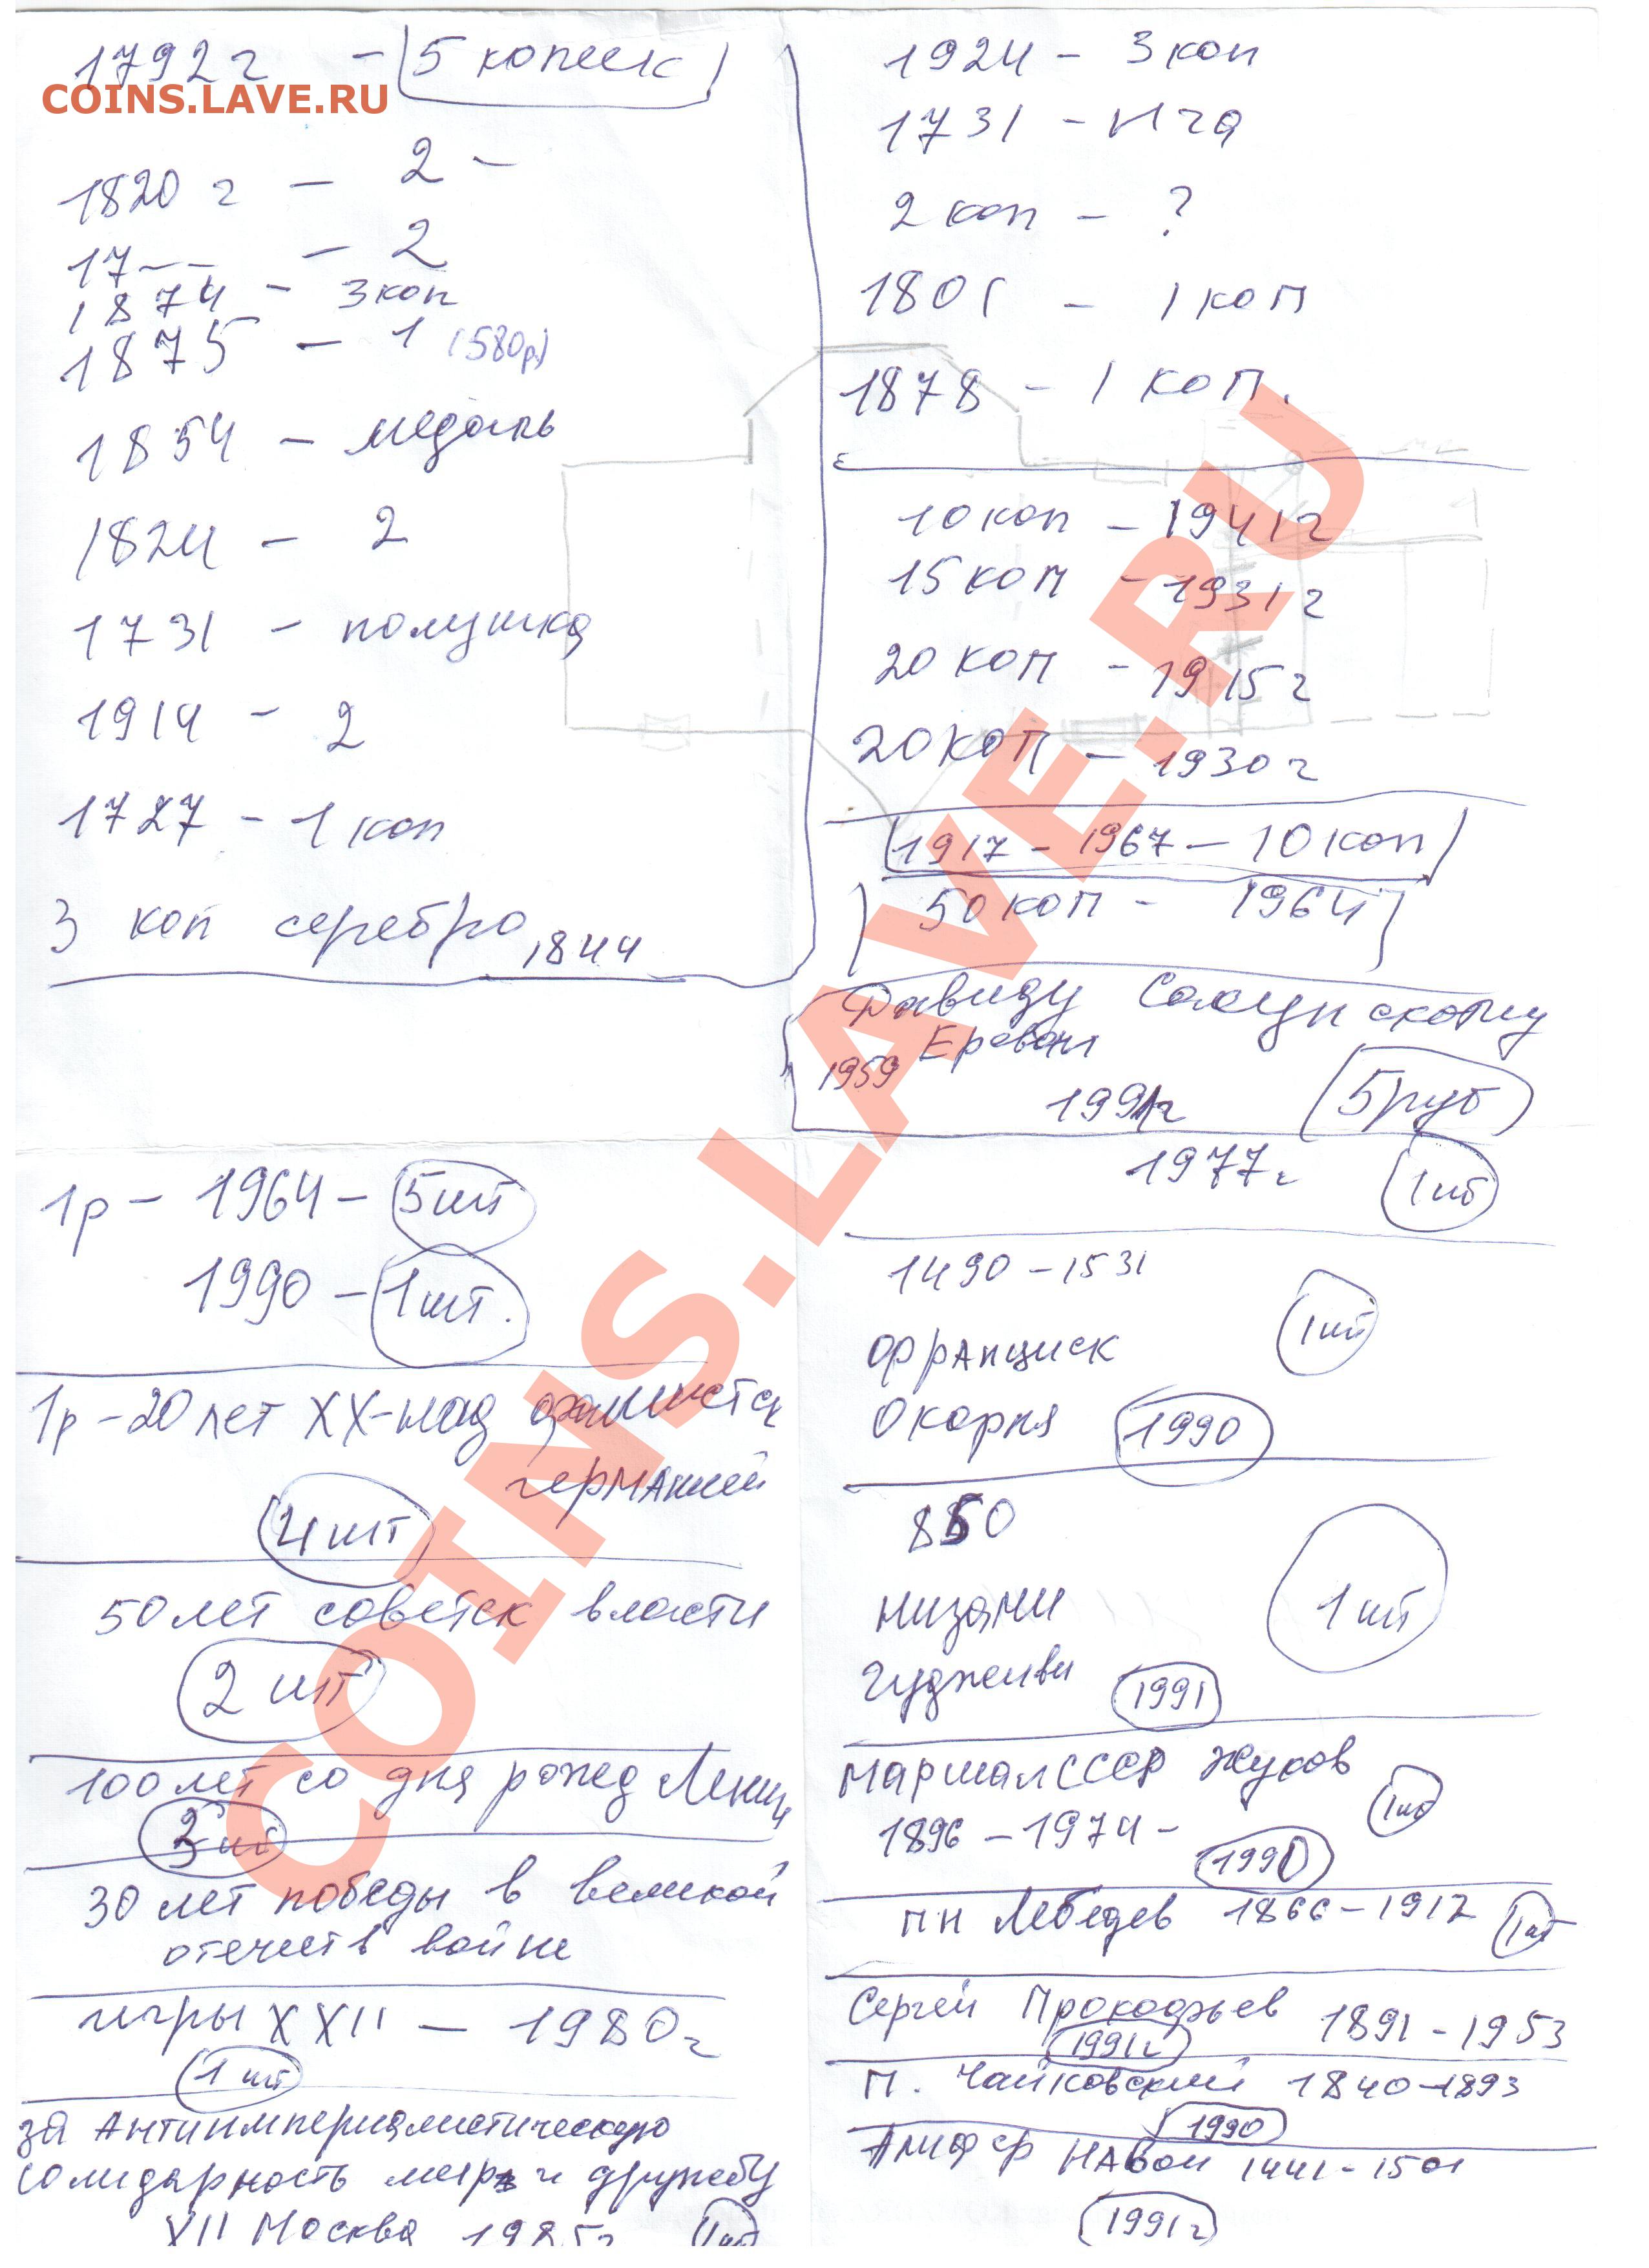 1792г - (5 копеек)
COINS.LAVE.RU
1820 г - 2 -
17-- - 2
1874 - 3 коп
1875 - 1 (580р)
1854 - медаль
1824 - 2
1731 - полушка
1914 - 2
1727 - 1 коп
3 коп серебро 1844
1924 - 3 коп
1731 -
2 коп - ?
1801 - 1 коп
1878 - 1 коп.
10 коп - 1941г
15 коп - 1931г
20 коп - 1915г
20 коп - 1930г
1917 - 1967 - 10 коп
50 коп - 1964
Давиду Сасунскому
Ереван
1959
1991г 5 руб
1977г 1 шт
1р - 1964 - 5 шт
1990 - 1 шт.
1р - 20 лет XX - над фашистск
германией
4 шт
50 лет советск власти
2 шт
100 лет со дня рожд Ленин
шт
30 лет победы в великой
отечеств войне
игры XXII - 1980г
1 шт
за Антиимпериалистическую
солидарность мир и дружбу
XII Москва 1985г 1 шт
1490 - 1531
1 шт
Франциск
Окорня 1990
850
низами
1 шт
гуджеиви 1991
Маршал СССР Жуков
1896 - 1974 - 1 шт
1990
пн Лебедев 1866 - 1912 1 шт
Сергей Прокофьев 1891 - 1953
1991г
П. Чайковский 1840 - 1893
1990
Навои 1441 - 1501
1991г
COINS.LAVE.RU